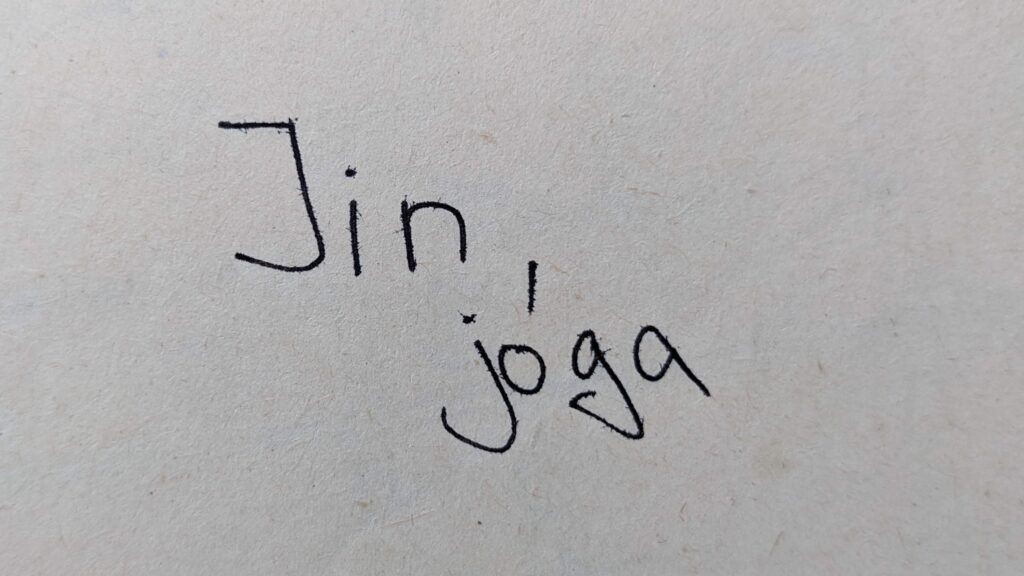 Jin
jóga